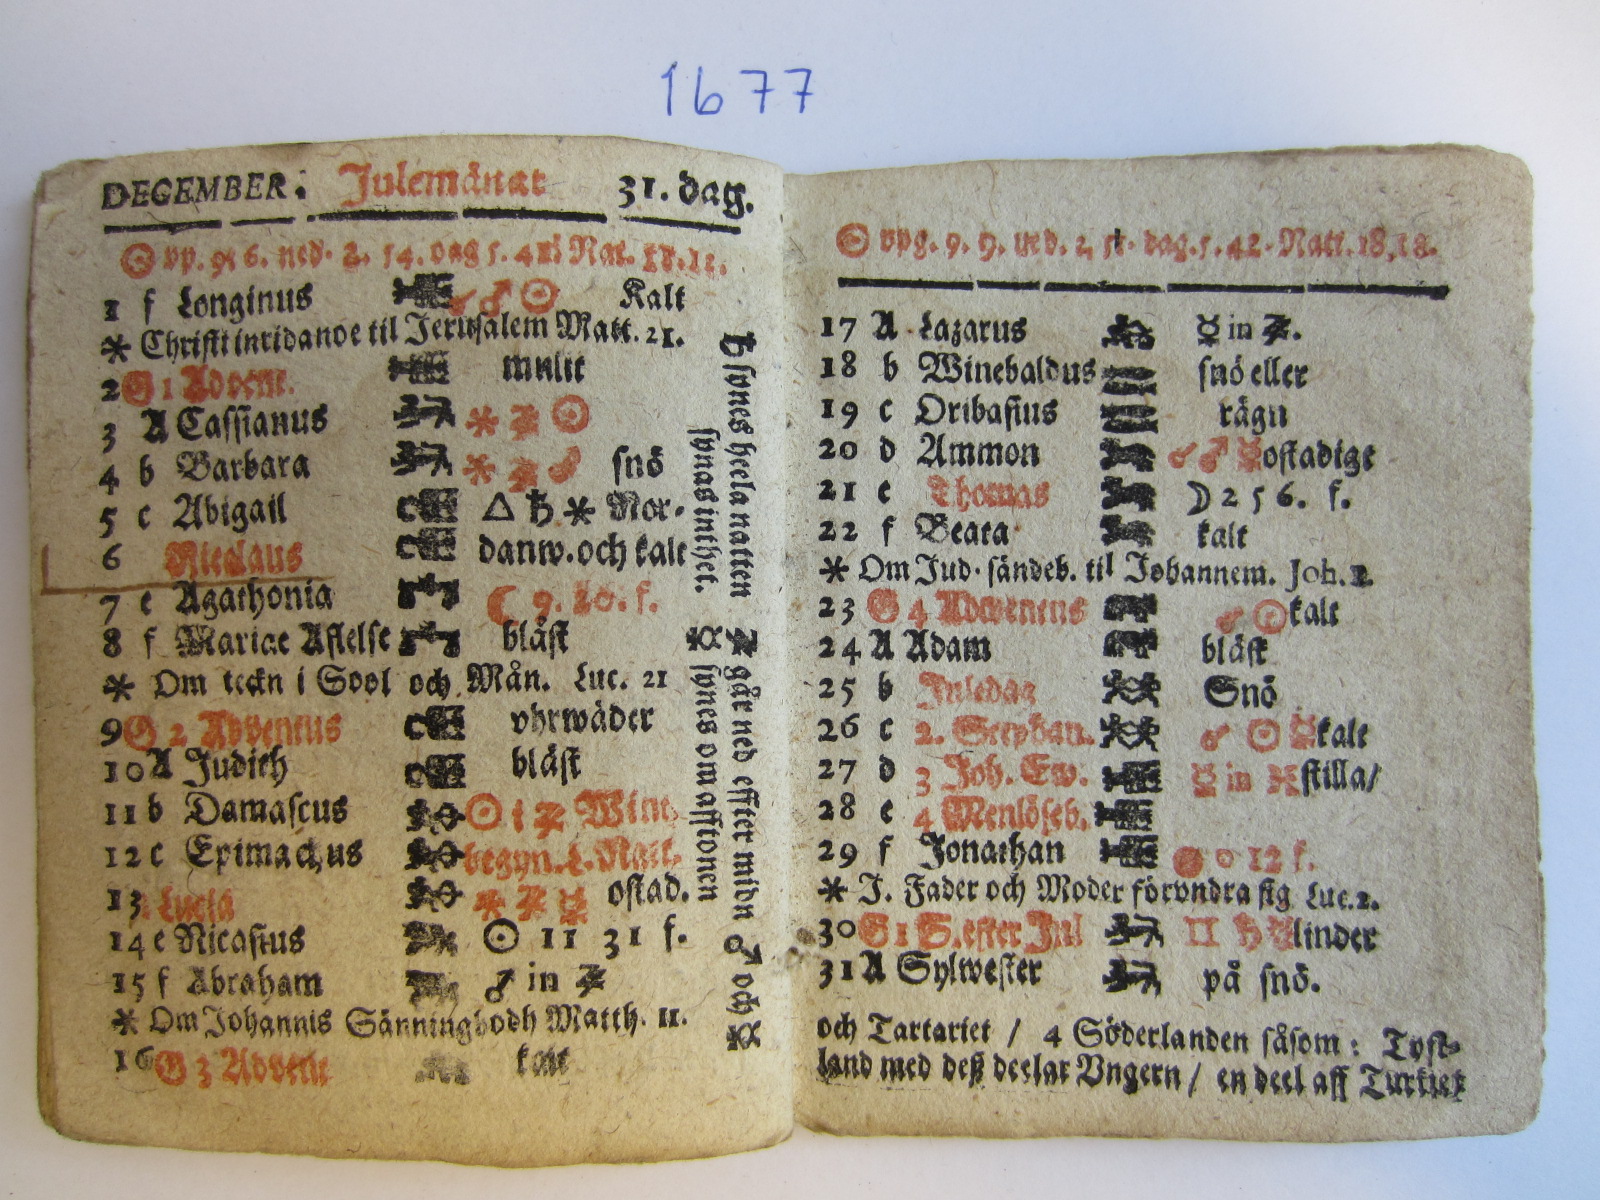 1677
DECEMBER. Julemånat 31. dag.
☉ vp. 9. 6. ned. 2. 54. dag 5. 48. Nat. 18.12.
1 f Longinus ☌ ♂ ☉ Kalt
* Christi inridande til Jerusalem Matt. 21.
2 G 1 Advent. mulit
3 A Cassianus * ♃ ☉
4 b Barbara * ♃ snö
5 c Abigail △ ♄ * Nor-
6 Nicolaus danw. och kalt
7 e Agathonia ☾ 9. 20. f.
8 f Mariae Aflelse blåst
* Om teckn i Sool och Mån. Luc. 21
9 G 2 Adventus vhrwäder
10 A Judith blåst
11 b Damascus ☉ i Wint.
12 c Epimachus begyn. L. Natt.
13 Lucia * ♃ ☿ ostad.
14 e Nicasius ☉ 11 31 f.
15 f Abraham ♂ in
* Om Johannis Sänningbodh Matth. 11.
16 G 3 Advent kalt
♄ synes heela natten
synas inthet.
♃ går ned effter midn ♂ och
synes om afftonen
☉ vpg. 9. 9. ned. 2, 51. dag. 5. 42. Natt. 18, 18.
17 A Lazarus ☿ in
18 b Winebaldus snö eller
19 c Oribasius rägn
20 d Ammon ☌ ♂ ☿ ostadigt
21 e Thomas ☽ 2 56. f.
22 f Beata kalt
* Om Jud. sändeb. til Johannem. Joh. 1.
23 G 4 Adventus ☌ ☉ kalt
24 A Adam blåst
25 b Juledag Snö
26 c 2. Stephan. ☌ ☉ ☿ kalt
27 d 3 Joh. Ew. ☿ in stilla/
28 e 4 Menlöseb.
29 f Jonathan 0 12 f.
* J. Fader och Moder förvndra sig Luc. 2.
30 G 1 S. efter Jul ♄ linder
31 A Sylwester på snö.
och Tartariet / 4 Söderlanden såsom : Tyst-
land med deß deelar Vngern / en deel aff Turkiet